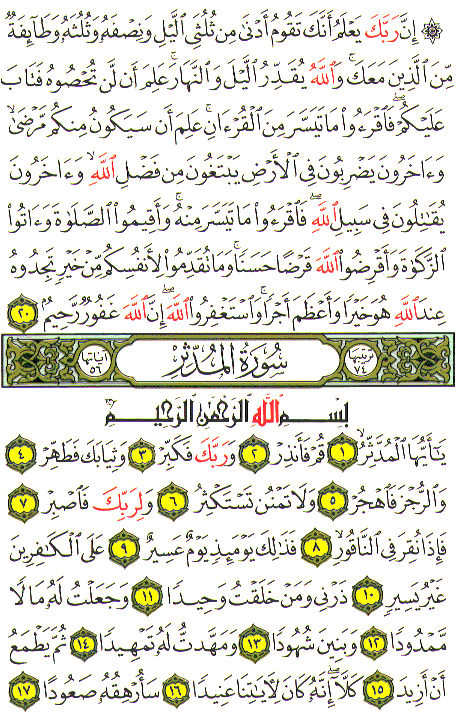 ۞ إِنَّ رَبَّكَ يَعْلَمُ أَنَّكَ تَقُومُ أَدْنَىٰ مِن ثُلُثَيِ ٱلَّيْلِ وَنِصْفَهُۥ وَثُلُثَهُۥ وَطَآئِفَةٌ
مِّنَ ٱلَّذِينَ مَعَكَ ۚ وَٱللَّهُ يُقَدِّرُ ٱلَّيْلَ وَٱلنَّهَارَ ۚ عَلِمَ أَن لَّن تُحْصُوهُ فَتَابَ
عَلَيْكُمْ ۖ فَٱقْرَءُوا۟ مَا تَيَسَّرَ مِنَ ٱلْقُرْءَانِ ۚ عَلِمَ أَن سَيَكُونُ مِنكُم مَّرْضَىٰ ۙ
وَءَاخَرُونَ يَضْرِبُونَ فِى ٱلْأَرْضِ يَبْتَغُونَ مِن فَضْلِ ٱللَّهِ ۙ وَءَاخَرُونَ
يُقَـٰتِلُونَ فِى سَبِيلِ ٱللَّهِ ۖ فَٱقْرَءُوا۟ مَا تَيَسَّرَ مِنْهُ ۚ وَأَقِيمُوا۟ ٱلصَّلَوٰةَ وَءَاتُوا۟
ٱلزَّكَوٰةَ وَأَقْرِضُوا۟ ٱللَّهَ قَرْضًا حَسَنًا ۚ وَمَا تُقَدِّمُوا۟ لِأَنفُسِكُم مِّنْ خَيْرٍ تَجِدُوهُ
عِندَ ٱللَّهِ هُوَ خَيْرًا وَأَعْظَمَ أَجْرًا ۚ وَٱسْتَغْفِرُوا۟ ٱللَّهَ ۖ إِنَّ ٱللَّهَ غَفُورٌ رَّحِيمٌۢ ٢٠
ترتيبها ٧٤ سُورَةُ المُدَّثِّر آياتها ٥٦
بِسْمِ ٱللَّهِ ٱلرَّحْمَـٰنِ ٱلرَّحِيمِ
يَـٰٓأَيُّهَا ٱلْمُدَّثِّرُ ١ قُمْ فَأَنذِرْ ٢ وَرَبَّكَ فَكَبِّرْ ٣ وَثِيَابَكَ فَطَهِّرْ ٤
وَٱلرُّجْزَ فَٱهْجُرْ ٥ وَلَا تَمْنُن تَسْتَكْثِرُ ٦ وَلِرَبِّكَ فَٱصْبِرْ ٧
فَإِذَا نُقِرَ فِى ٱلنَّاقُورِ ٨ فَذَٰلِكَ يَوْمَئِذٍ يَوْمٌ عَسِيرٌ ٩ عَلَى ٱلْكَـٰفِرِينَ
غَيْرُ يَسِيرٍ ١٠ ذَرْنِى وَمَنْ خَلَقْتُ وَحِيدًا ١١ وَجَعَلْتُ لَهُۥ مَالًا
مَّمْدُودًا ١٢ وَبَنِينَ شُهُودًا ١٣ وَمَهَّدتُّ لَهُۥ تَمْهِيدًا ١٤ ثُمَّ يَطْمَعُ
أَنْ أَزِيدَ ١٥ كَلَّآ ۖ إِنَّهُۥ كَانَ لِـَٔايَـٰتِنَا عَنِيدًا ١٦ سَأُرْهِقُهُۥ صَعُودًا ١٧